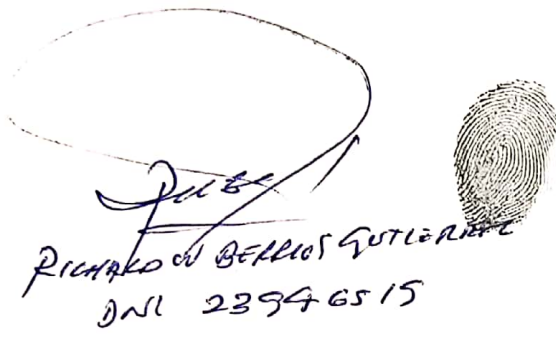 RICHARD W BERRIOS GUTIERREZ
DNI 23946515